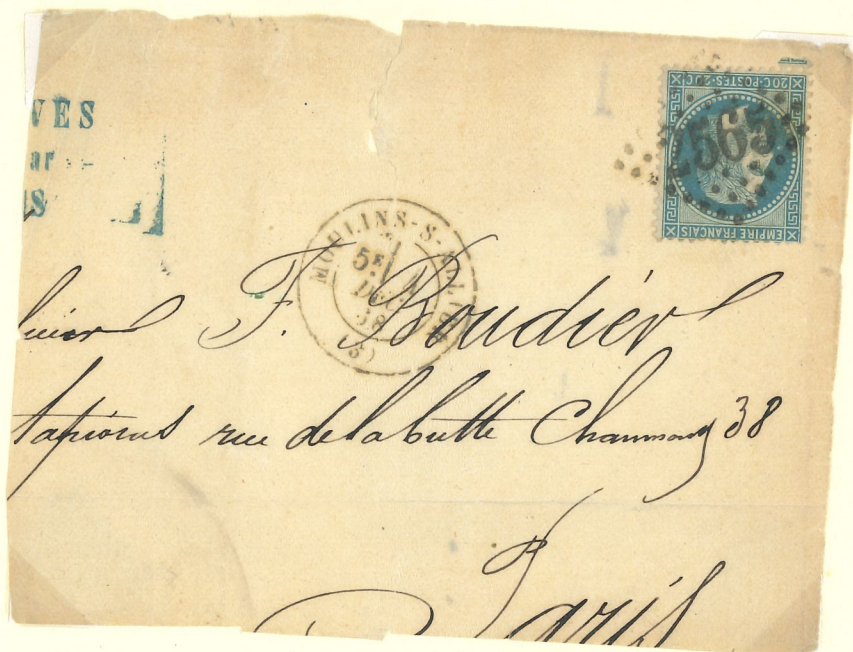 VES
ar
IS
20C·POSTES·20C
EMPIRE FRANÇAIS
2565
MOULINS-S-ALLIER
5E
DEC.
68
(3)
F. Boudier
tapiocas rue de la butte Chaumont 38
Paris